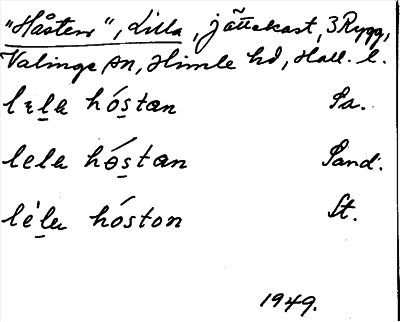 "Håsten", Lilla, jättekast, 3 Rygg,
Valinge sn, Himle hd, Hall. l.
lɛla hóstan Pa.
lela hóstan Sand.
léla hóston St.
1949.